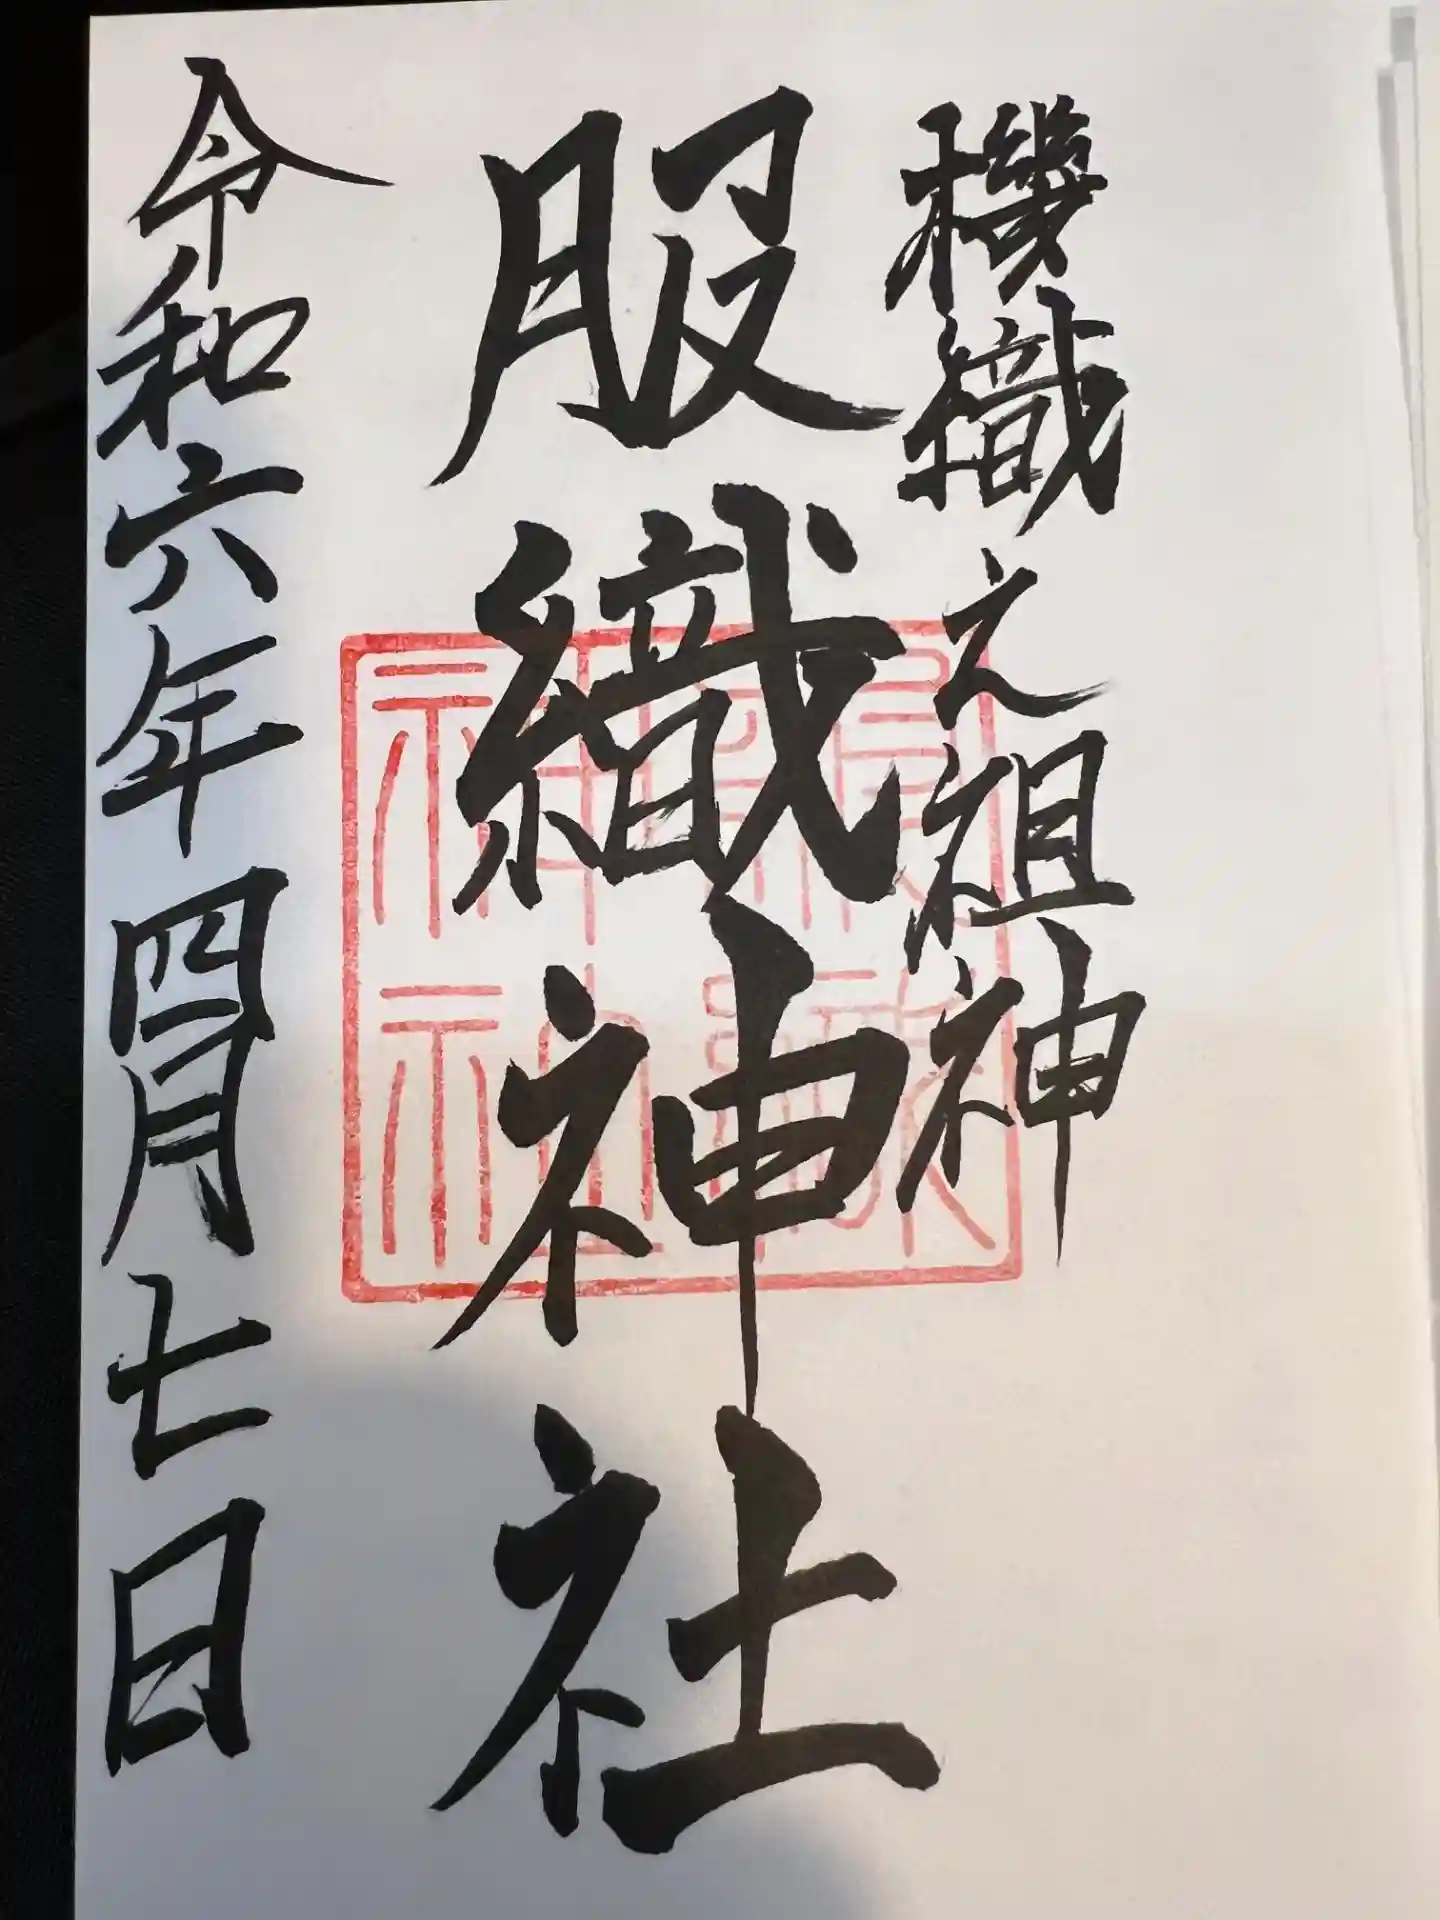 機織之祖神
服織神社
令和六年四月七日